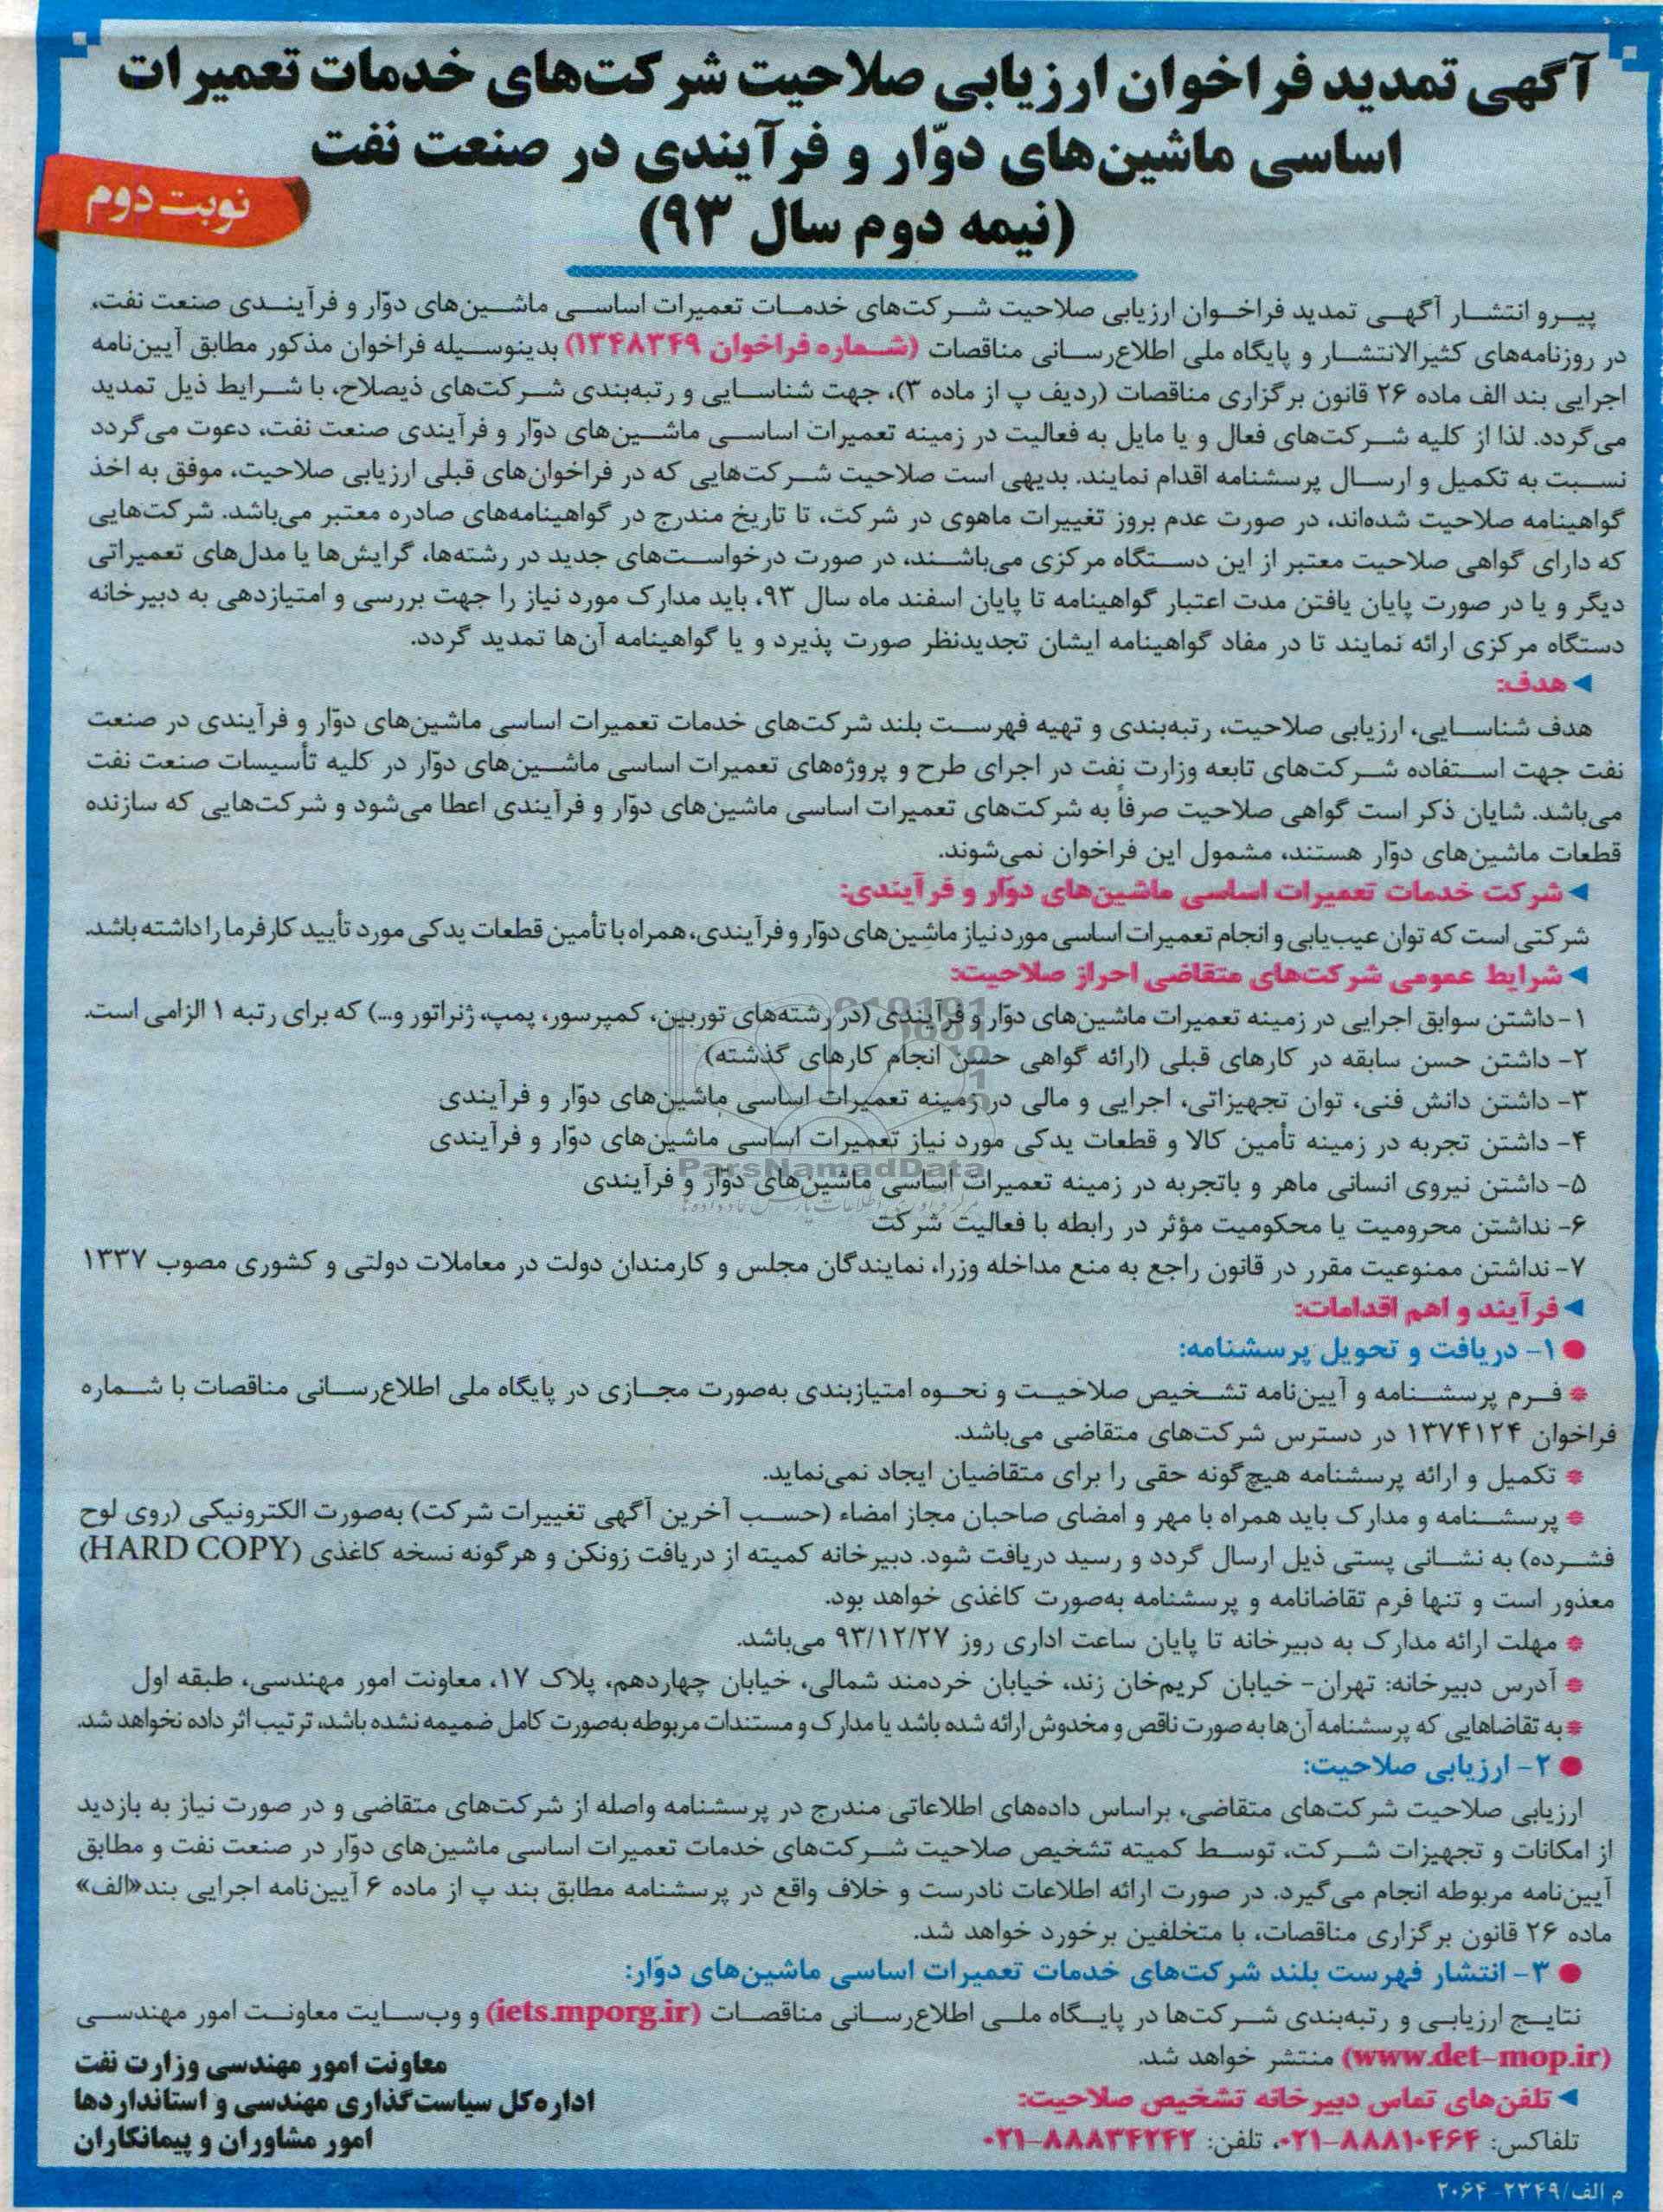 آگهی تمدید فراخوان ارزیابی صلاحیت شرکت‌های خدمات تعمیرات
اساسی ماشین‌های دوّار و فرآیندی در صنعت نفت
(نیمه دوم سال ۹۳)
نوبت دوم
پیـرو انتشـار آگهـی تمدید فراخـوان ارزیابی صلاحیت شـرکت‌های خدمـات تعمیرات اساسـی ماشـین‌های دوّار و فرآینـدی صنعت نفت،
در روزنامه‌های کثیرالانتشـار و پایگاه ملی اطلاع‌رسـانی مناقصات (شـماره فراخوان ۱۳۴۸۳۴۹) بدینوسـیله فراخوان مذکور مطابق آیین‌نامه
اجرایی بند الف ماده ۲۶ قانون برگزاری مناقصات (ردیف پ از ماده ۳)، جهت شناسـایی و رتبه‌بندی شـرکت‌های ذیصلاح، با شـرایط ذیل تمدید
می‌گردد. لذا از کلیه شـرکت‌های فعال و یا مایل به فعالیت در زمینه تعمیرات اساسـی ماشـین‌های دوّار و فرآیندی صنعت نفت، دعوت می‌گردد
نسـبت به تکمیل و ارسـال پرسشنامه اقدام نمایند. بدیهی است صلاحیت شـرکت‌هایی که در فراخوان‌های قبلی ارزیابی صلاحیت، موفق به اخذ
گواهینامه صلاحیت شده‌اند، در صورت عدم بروز تغییرات ماهوی در شرکت، تا تاریخ مندرج در گواهینامه‌های صادره معتبر می‌باشد. شرکت‌هایی
که دارای گواهی صلاحیت معتبر از این دسـتگاه مرکزی می‌باشـند، در صورت درخواسـت‌های جدید در رشته‌ها، گرایش‌ها یا مدل‌های تعمیراتی
دیگر و یا در صورت پایان یافتن مدت اعتبار گواهینامه تا پایان اسفند ماه سال ۹۳، باید مدارک مورد نیاز را جهت بررسی و امتیازدهی به دبیرخانه
دستگاه مرکزی ارائه نمایند تا در مفاد گواهینامه ایشان تجدیدنظر صورت پذیرد و یا گواهینامه آن‌ها تمدید گردد.
◄ هدف:
هدف شناسـایی، ارزیابی صلاحیت، رتبه‌بندی و تهیه فهرسـت بلند شرکت‌های خدمات تعمیرات اساسی ماشین‌های دوّار و فرآیندی در صنعت
نفت جهت اسـتفاده شـرکت‌های تابعه وزارت نفت در اجرای طرح و پروژه‌های تعمیرات اساسی ماشـین‌های دوّار در کلیه تأسیسات صنعت نفت
می‌باشد. شایان ذکر است گواهی صلاحیت صرفاً به شرکت‌های تعمیرات اساسی ماشین‌های دوّار و فرآیندی اعطا می‌شود و شرکت‌هایی که سازنده
قطعات ماشین‌های دوّار هستند، مشمول این فراخوان نمی‌شوند.
◄ شرکت خدمات تعمیرات اساسی ماشین‌های دوّار و فرآیندی:
شرکتی است که توان عیب‌یابی و انجام تعمیرات اساسی مورد نیاز ماشین‌های دوّار و فرآیندی، همراه با تأمین قطعات یدکی مورد تأیید کارفرما را داشته باشد.
◄ شرایط عمومی شرکت‌های متقاضی احراز صلاحیت:
۱- داشتن سوابق اجرایی در زمینه تعمیرات ماشین‌های دوّار و فرآیندی (در رشته‌های توربین، کمپرسور، پمپ، ژنراتور و...) که برای رتبه ۱ الزامی است.
۲- داشتن حسن سابقه در کارهای قبلی (ارائه گواهی حسن انجام کارهای گذشته)
۳- داشتن دانش فنی، توان تجهیزاتی، اجرایی و مالی در زمینه تعمیرات اساسی ماشین‌های دوّار و فرآیندی
۴- داشتن تجربه در زمینه تأمین کالا و قطعات یدکی مورد نیاز تعمیرات اساسی ماشین‌های دوّار و فرآیندی
ParsNamadData
۵- داشتن نیروی انسانی ماهر و باتجربه در زمینه تعمیرات اساسی ماشین‌های دوّار و فرآیندی
۶- نداشتن محرومیت یا محکومیت مؤثر در رابطه با فعالیت شرکت
۷- نداشتن ممنوعیت مقرر در قانون راجع به منع مداخله وزرا، نمایندگان مجلس و کارمندان دولت در معاملات دولتی و کشوری مصوب ۱۳۳۷
◄ فرآیند و اهم اقدامات:
● ۱- دریافت و تحویل پرسشنامه:
* فـرم پرسشـنامه و آیین‌نامه تشـخیص صلاحیـت و نحـوه امتیازبندی به‌صورت مجـازی در پایگاه ملی اطلاع‌رسـانی مناقصات با شـماره
فراخوان ۱۳۷۴۱۲۴ در دسترس شرکت‌های متقاضی می‌باشد.
* تکمیل و ارائه پرسشنامه هیچ‌گونه حقی را برای متقاضیان ایجاد نمی‌نماید.
* پرسشـنامه و مدارک باید همراه با مهر و امضای صاحبان مجاز امضاء (حسـب آخرین آگهی تغییرات شرکت) به‌صورت الکترونیکی (روی لوح
فشـرده) به نشـانی پستی ذیل ارسال گردد و رسید دریافت شود. دبیرخانه کمیته از دریافت زونکن و هرگونه نسخه کاغذی (HARD COPY)
معذور است و تنها فرم تقاضانامه و پرسشنامه به‌صورت کاغذی خواهد بود.
* مهلت ارائه مدارک به دبیرخانه تا پایان ساعت اداری روز ۹۳/۱۲/۲۷ می‌باشد.
* آدرس دبیرخانه: تهران- خیابان کریم‌خان زند، خیابان خردمند شمالی، خیابان چهاردهم، پلاک ۱۷، معاونت امور مهندسی، طبقه اول
* به تقاضاهایی که پرسشنامه آن‌ها به صورت ناقص و مخدوش ارائه شده باشد یا مدارک و مستندات مربوطه به‌صورت کامل ضمیمه نشده باشد، ترتیب اثر داده نخواهد شد.
● ۲- ارزیابی صلاحیت:
ارزیابی صلاحیت شرکت‌های متقاضی، براساس داده‌های اطلاعاتی مندرج در پرسشنامه واصله از شرکت‌های متقاضی و در صورت نیاز به بازدید
از امکانات و تجهیزات شـرکت، توسـط کمیته تشخیص صلاحیت شـرکت‌های خدمات تعمیرات اساسی ماشین‌های دوّار در صنعت نفت و مطابق
آیین‌نامه مربوطه انجام می‌گیرد. در صورت ارائه اطلاعات نادرست و خلاف واقع در پرسشنامه مطابق بند پ از ماده ۶ آیین‌نامه اجرایی بند«الف»
ماده ۲۶ قانون برگزاری مناقصات، با متخلفین برخورد خواهد شد.
● ۳- انتشار فهرست بلند شرکت‌های خدمات تعمیرات اساسی ماشین‌های دوّار:
نتایـج ارزیابـی و رتبه‌بندی شـرکت‌ها در پایـگاه ملـی اطلاع‌رسـانی مناقصـات (iets.mporg.ir) و وب‌سـایت معاونـت امور مهندسـی
(www.det-mop.ir) منتشر خواهد شد.
◄ تلفن‌های تماس دبیرخانه تشخیص صلاحیت:
تلفاکس: ۸۸۸۱۰۴۶۴-۰۲۱، تلفن: ۸۸۸۳۴۲۴۲-۰۲۱
معاونت امور مهندسی وزارت نفت
اداره‌کل سیاست‌گذاری مهندسی و استانداردها
امور مشاوران و پیمانکاران
م الف/۲۳۴۹-۲۰۶۴